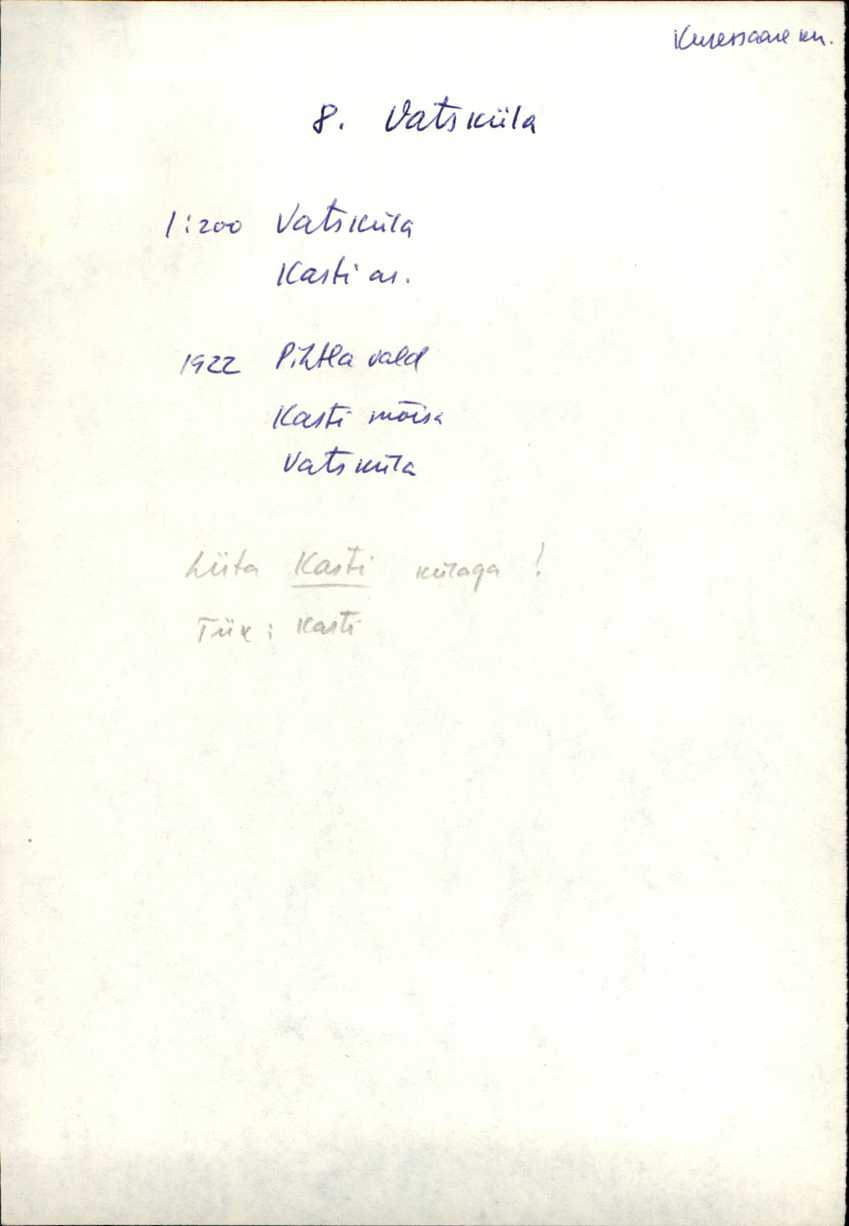 Kuressaare kn.
8. Vatsküla
1:200 Vatsküla
Kasti as.
1922 Pihtla vald
Kasti mõisa
Vatsküla
Liita Kasti külaga !
Tük : Kasti